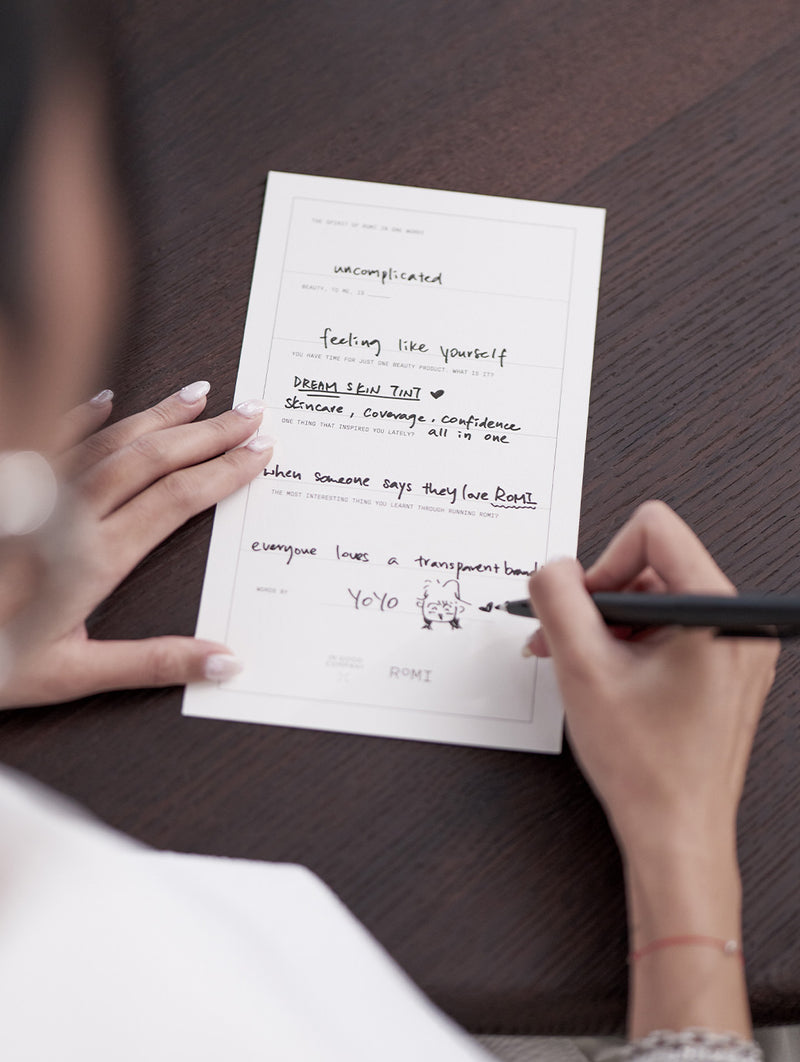 THE SPIRIT OF ROMI IN ONE WORD?
uncomplicated
BEAUTY, TO ME, IS _____
feeling like yourself
YOU HAVE TIME FOR JUST ONE BEAUTY PRODUCT. WHAT IS IT?
DREAM SKIN TINT ♥
skincare, coverage, confidence
all in one
ONE THING THAT INSPIRED YOU LATELY?
when someone says they love ROMI
THE MOST INTERESTING THING YOU LEARNT THROUGH RUNNING ROMI?
everyone loves a transparent brand
WORDS BY
YOYO
IN GOOD
COMPANY
ROMI